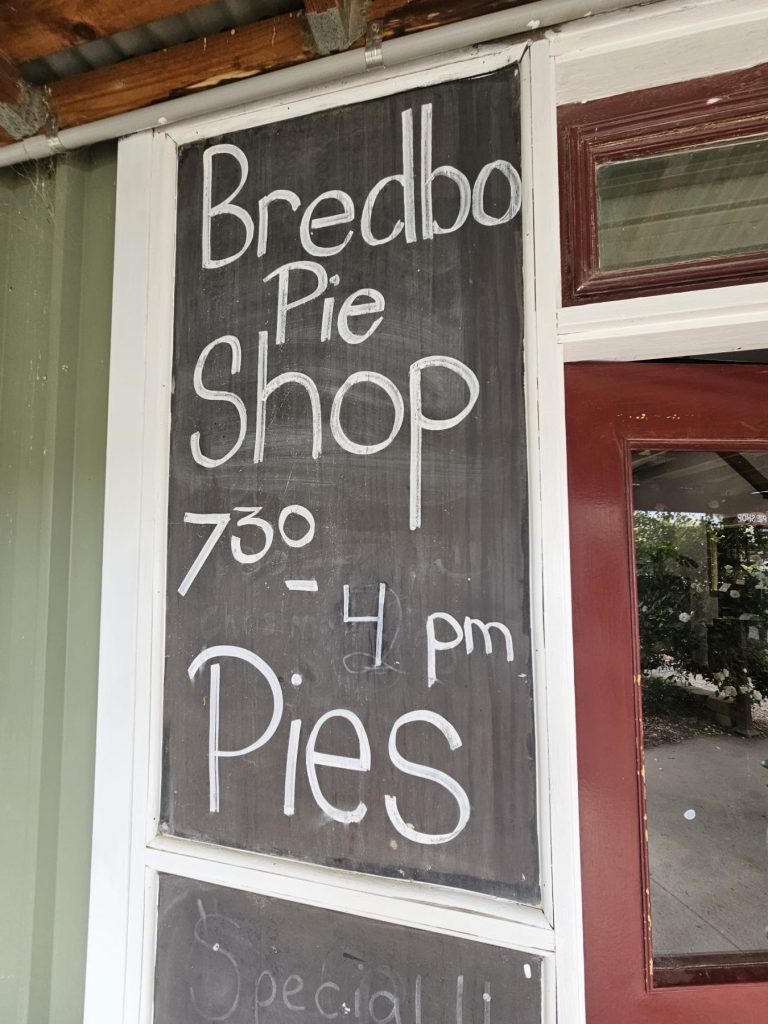 Bredbo
Pie
Shop
7³⁰
- 4 pm
Pies
Special !!